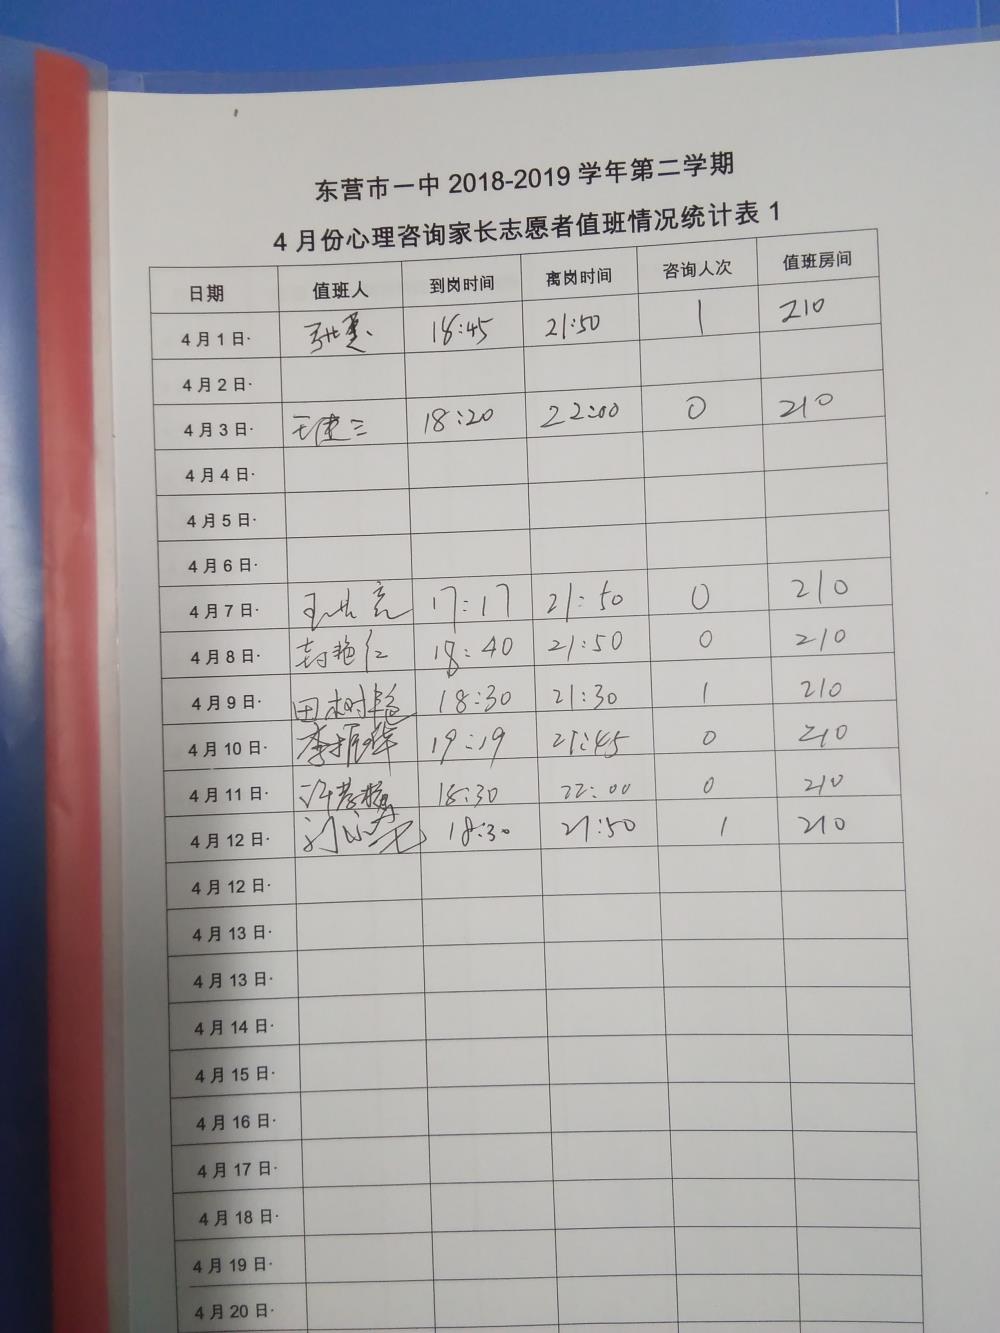 东营市一中 2018-2019 学年第二学期
4 月份心理咨询家长志愿者值班情况统计表 1
日期 值班人 到岗时间 离岗时间 咨询人次 值班房间
4 月 1 日· 18:45 21:50 1 210
4 月 2 日·
4 月 3 日· 18:20 22:00 0 210
4 月 4 日·
4 月 5 日·
4 月 6 日·
4 月 7 日· 17:17 21:50 0 210
4 月 8 日· 封艳红 18:40 21:50 0 210
4 月 9 日· 田树艳 18:30 21:30 1 210
4 月 10 日· 李振华 19:19 21:45 0 210
4 月 11 日· 18:30 22:00 0 210
4 月 12 日· 18:30 21:50 1 210
4 月 12 日·
4 月 13 日·
4 月 13 日·
4 月 14 日·
4 月 15 日·
4 月 16 日·
4 月 17 日·
4 月 18 日·
4 月 19 日·
4 月 20 日·